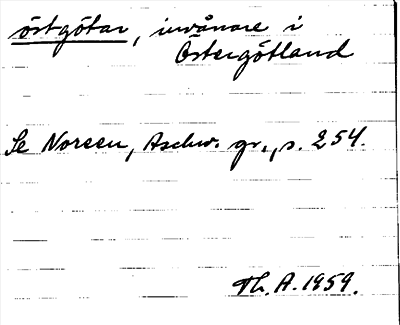 östgötar, invånare i
Östergötland
Se Noreen, Aschw. gr., s. 254.
Th. A. 1959.